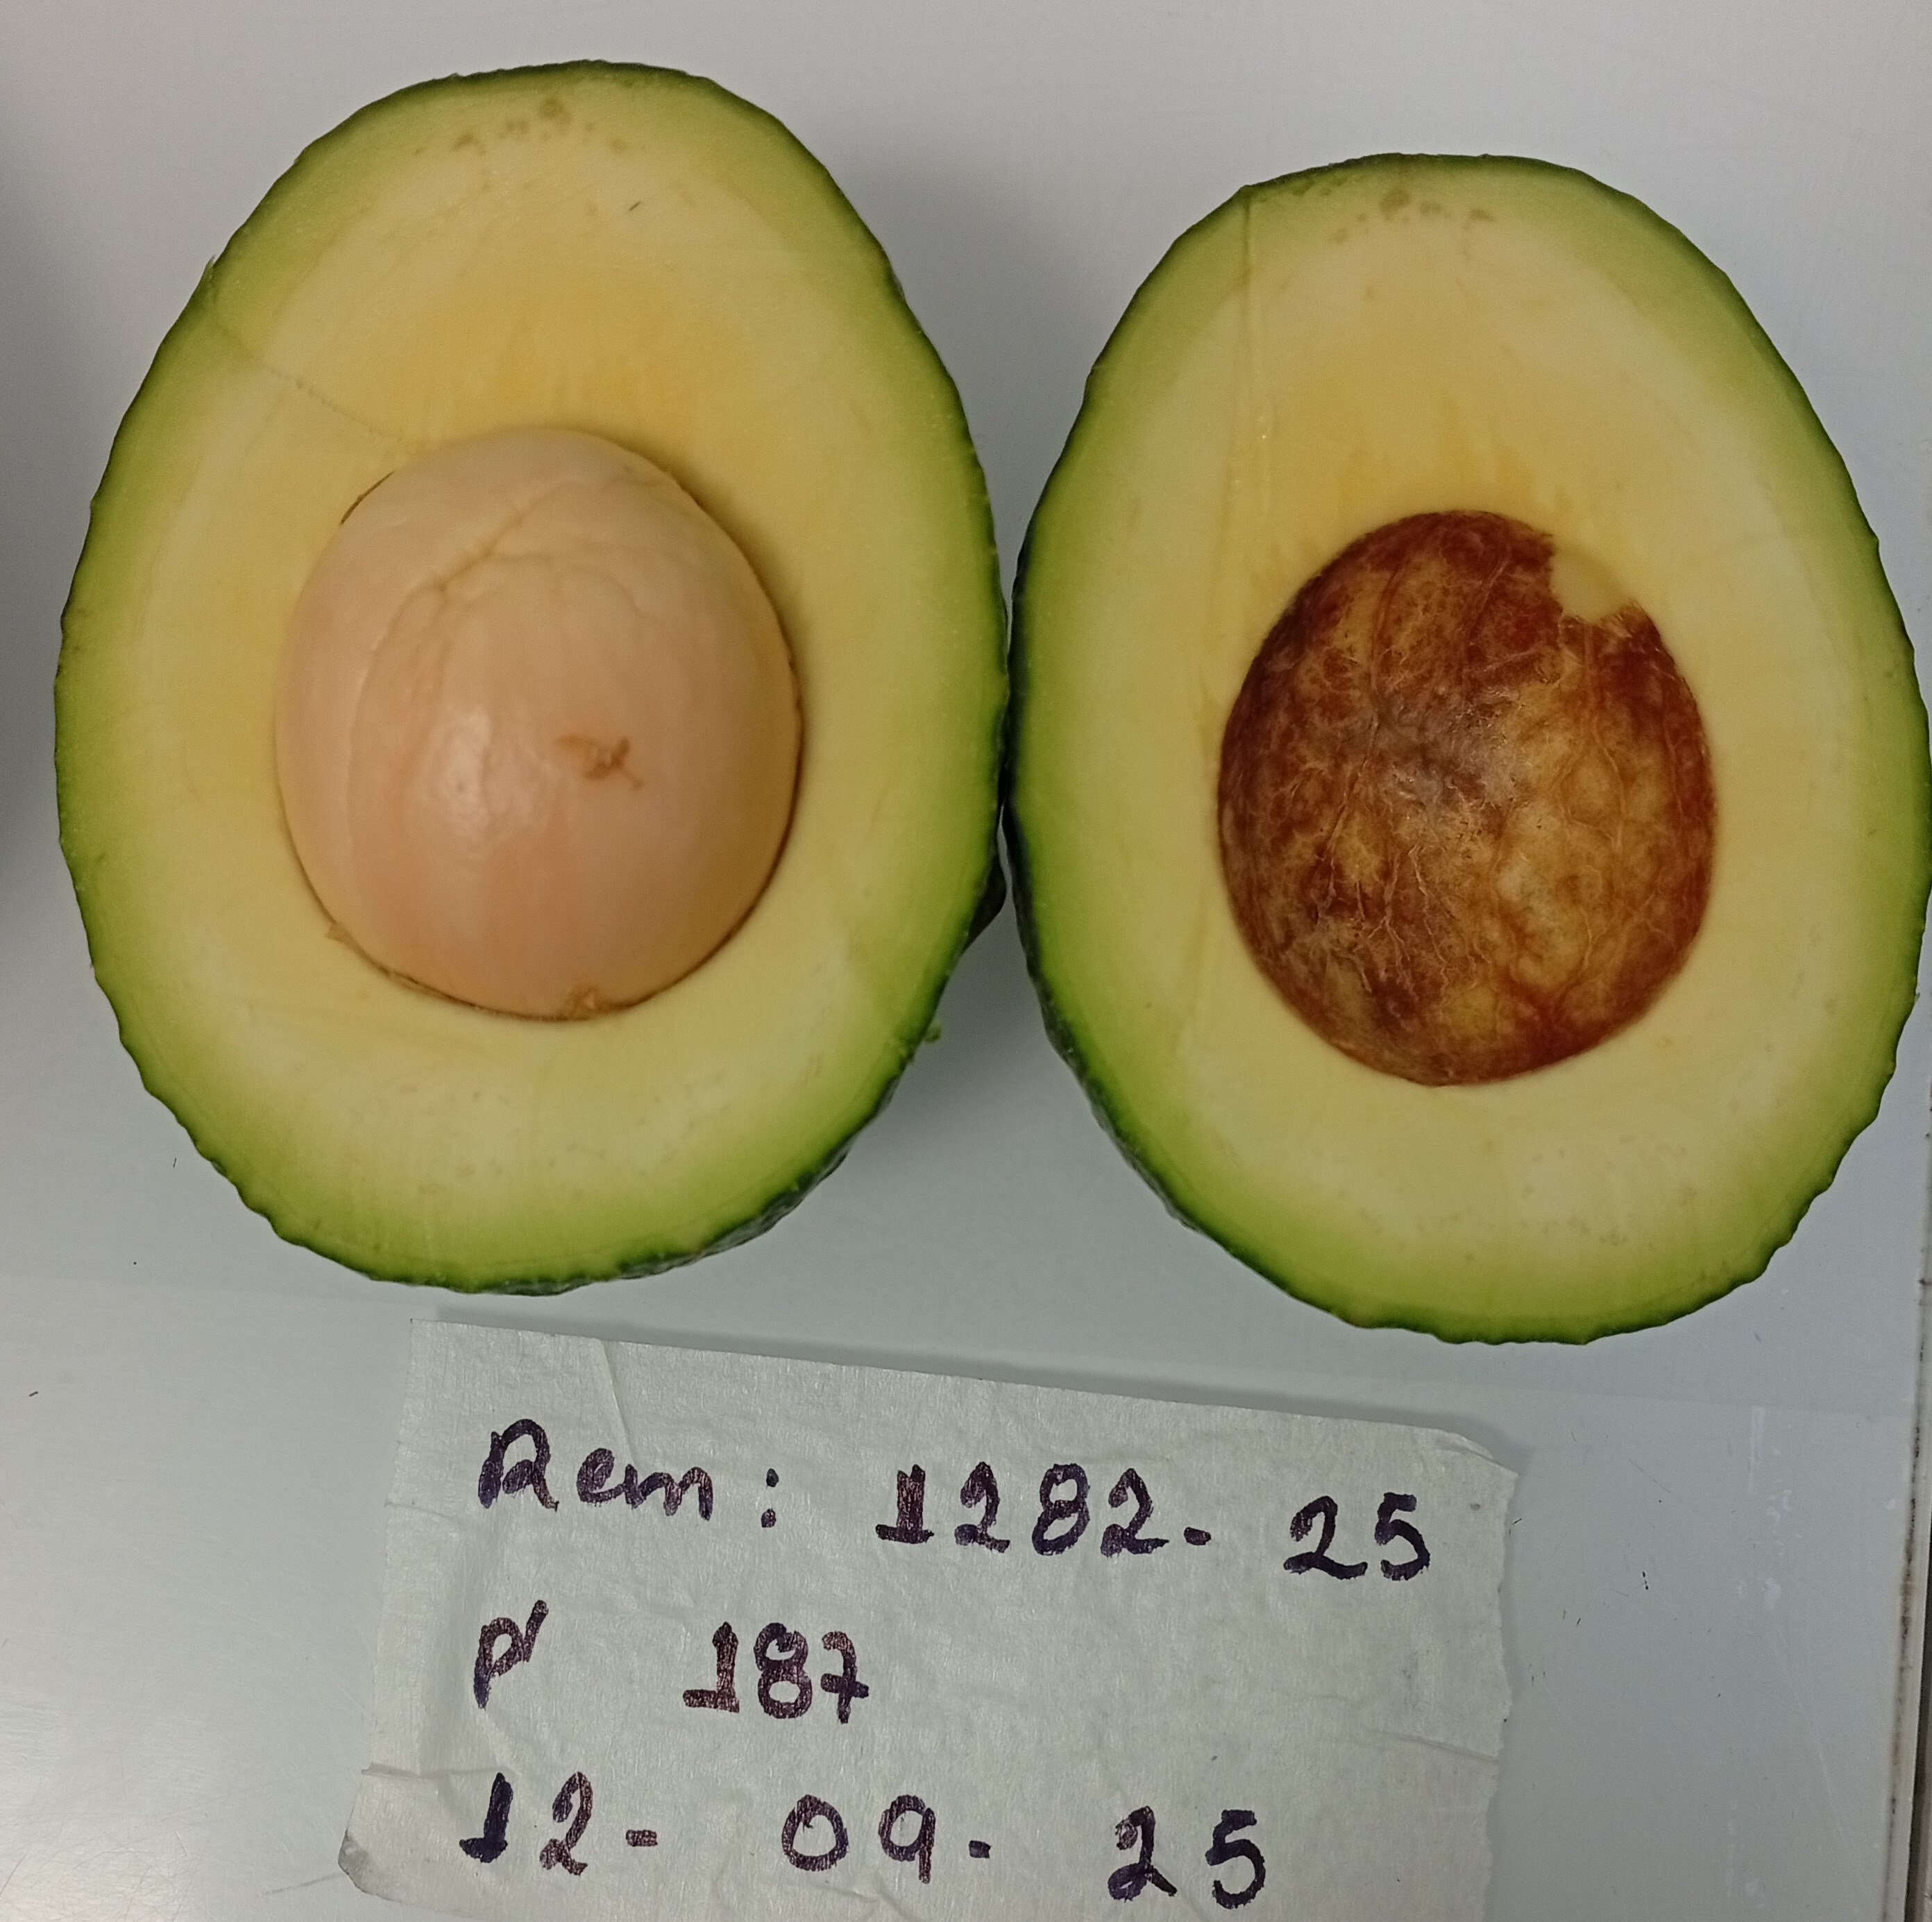 Rem: 1282-25
P 187
12-09-25